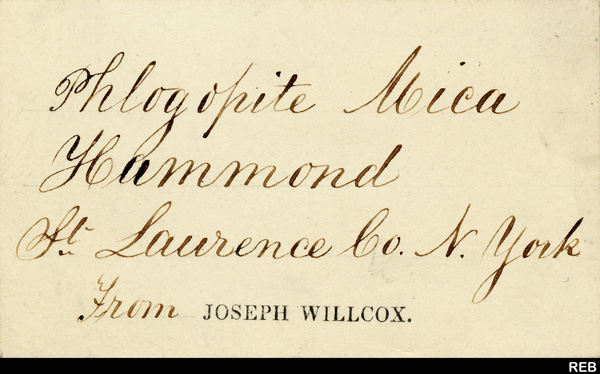 Phlogopite Mica
Hammond
St. Laurence Co. N. York
From JOSEPH WILLCOX.
REB